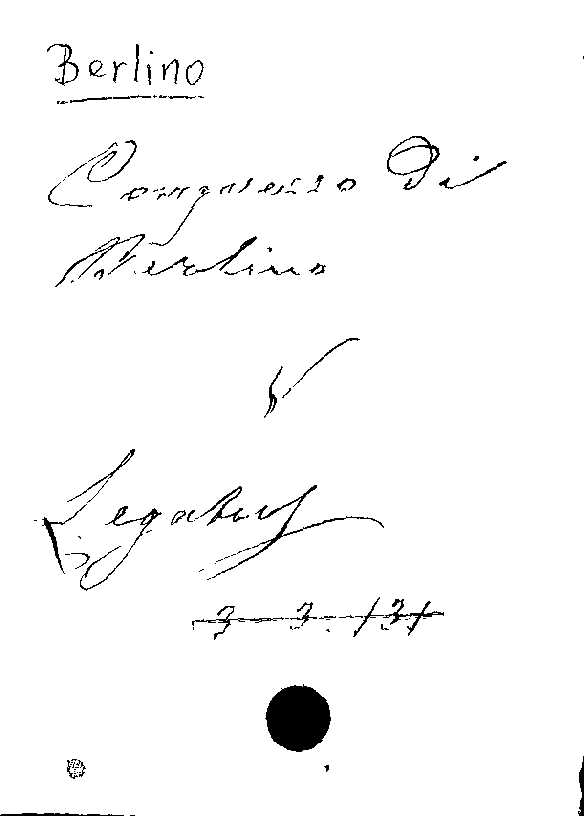 Berlino
Congresso Di
Berlino
V
Legatus
3 3. 131